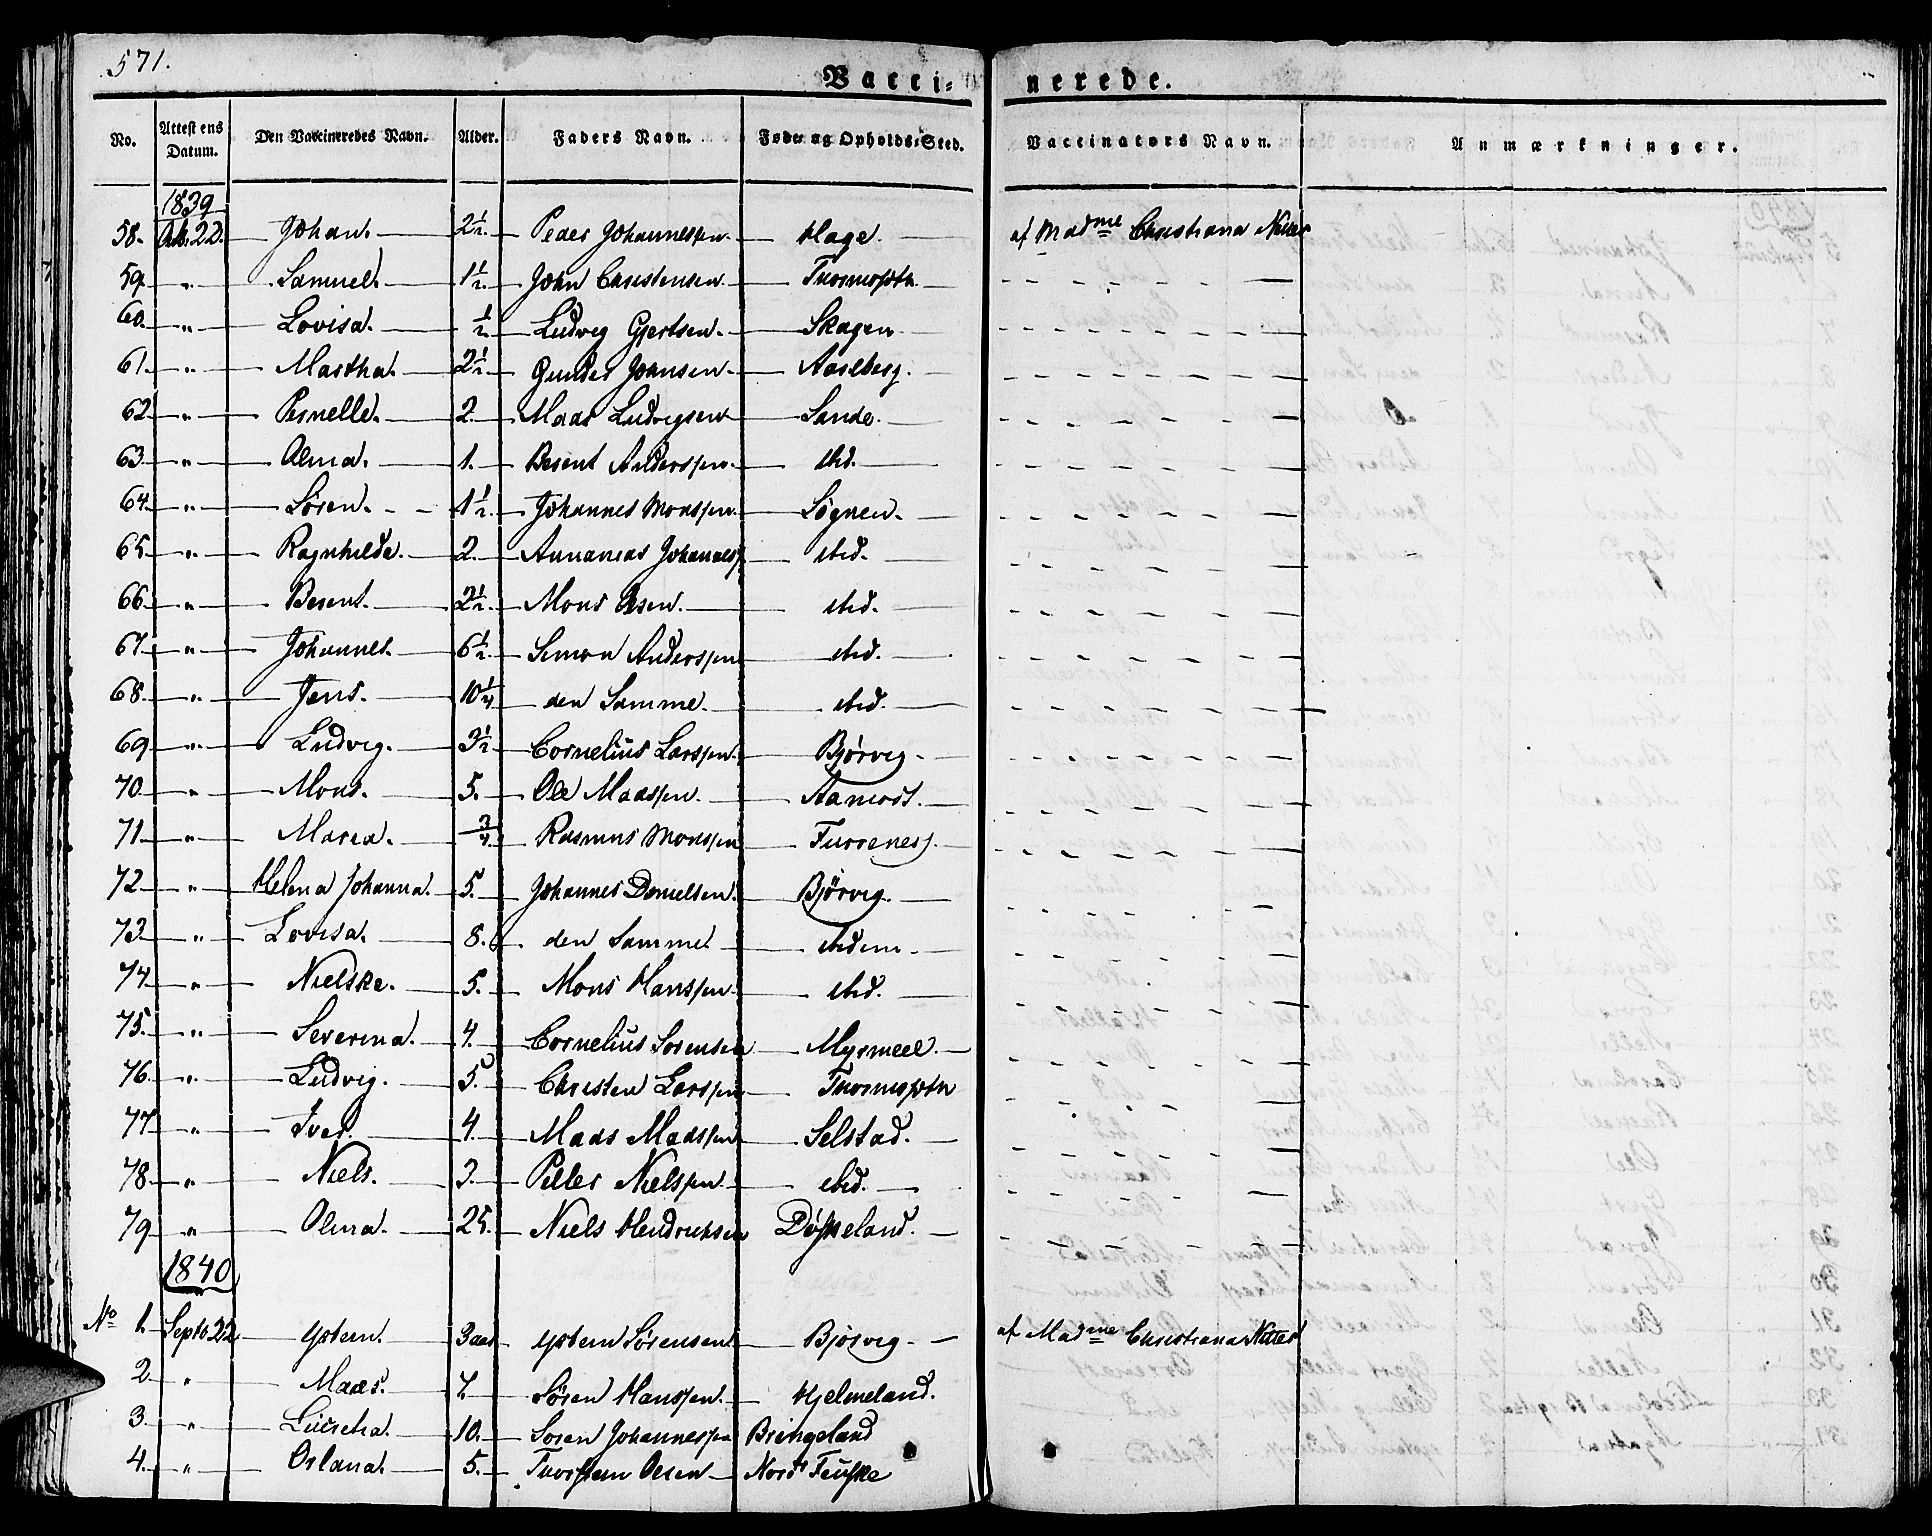 571.
Vacci- nerede.
No. Attestens Datum. Den Vaccineredes Navn. Alder. Faders Navn. Føde og Opholds-Sted. Vaccinators Navn. Anmærkninger.
1839
58. 22. Johan. 2½. Peder Johannessen. Hage. af Madme Christiana
59. " Samuel. 1½. John Christensen
60. " Lovisa. ½ Ludvig Gjertsen. Skagen
61. " Martha. 2½. Gunder Johnsen. Aarberg.
62. " Pernelle. 2. Mads Ludvigsen Sande.
63. " Alma. 1. Berent Anderssen. ibid.
64. " Søren. 1½. Johannes Monssen. Søgnen.
65. " Ragnhilde. 2. Annanias ibid.
66. " Berent. 2½. Mons Olsen. ibid.
67. " Johannes. 6½. Simon Anderssen ibid.
68. " Jens. 10¼ den Samme. ibid.
69. " Ludvig. 3½. Cornelius Larssen. Bjørvig
70. " Mons. 5. Ole Madssen.
71. " Maria. ¾. Rasmus Monssen
72. " Helena Johanna. 5. Johannes Danielsen. Bjørvig.
73. " Lovisa. 8. den Samme. ibidem
74. " Nielske. 5. Mons Hanssen. ibid.
75. " Severina. 4. Cornelius Sørensen Myrmeel.
76. " Ludvig. 5. Christen Larssen
77. " Iver. 4. Mads Madssen Selstad.
78. " Niels. 3. Peder Nielssen ibid.
79 " Olina. 25. Niels Hendriksen Døskeland.
1840
No 1. Septb 22. Ystein. 3 aar Ystein Sørensen. Bjørvig af Madme Christiana
2. " Mads. 7. Søren Hanssen. Hjelmeland.
3. " Lucretia. 10. Søren Johannessen Bringeland
4. " Orlana. 5. Thorstein Olsen Nord